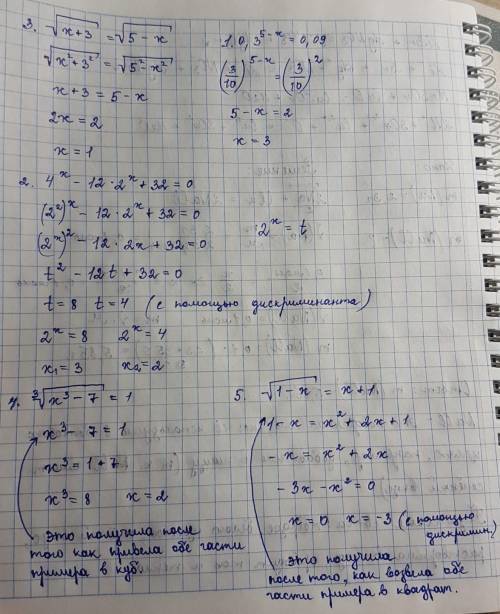 3. √(x+3) = √(5-x)
√(x²+3²) = √(5²-x²)
x+3 = 5-x
2x = 2
x = 1
1. 0,3^(5-x) = 0,09
(3/10)^(5-x) = (3/10)²
5-x = 2
x = 3
2. 4^x - 12·2^x + 32 = 0
(2²)^x - 12·2^x + 32 = 0
(2^x)² - 12·2x + 32 = 0
2^x = t
t² - 12t + 32 = 0
t = 8 t = 4 (с помощью дискриминанта)
2^x = 8 2^x = 4
x₁ = 3 x₂ = 2
4. ∛(x³-7) = 1
x³ - 7 = 1
x³ = 1+7
x³ = 8 x = 2
это получила после
того как привела обе части
примера в куб.
5. √(1-x) = x+1
1-x = x² + 2x + 1
-x = x² + 2x
-3x - x² = 0
x = 0 x = -3 (с помощью
дискримин)
это получила
после того, как возвела обе
части примера в квадрат.